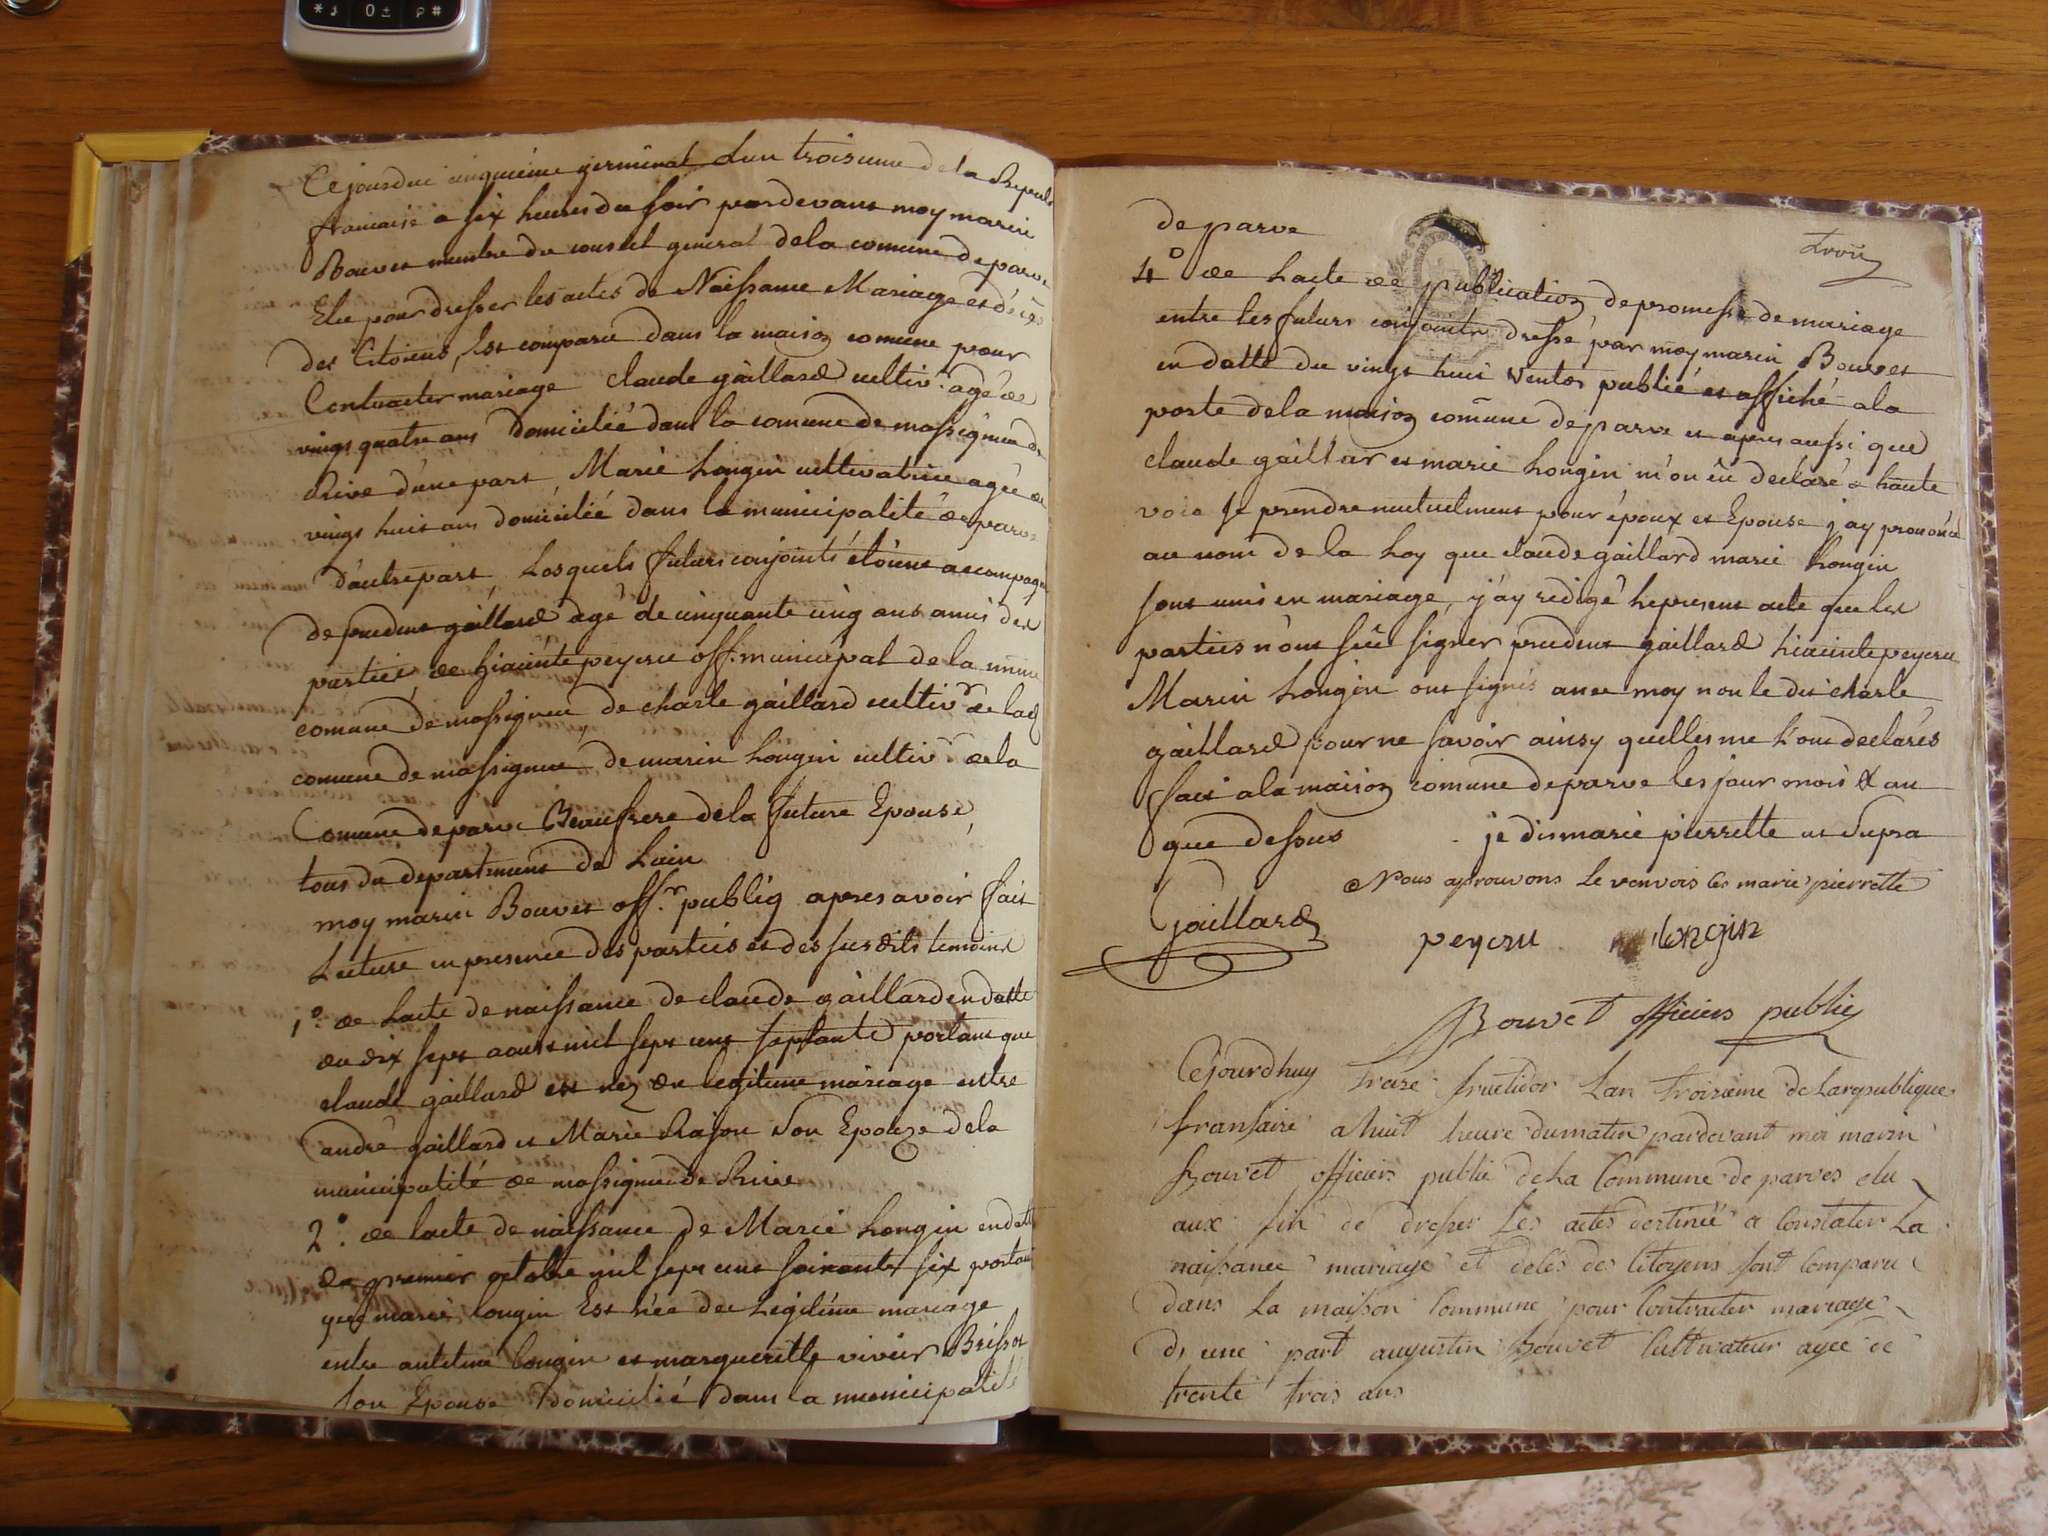 * 0 ± #
Cejourdui cinquième germinal dun troisieme dela Republ
francaise a six heures du soir pardevant moy marin
Bouvet membre du conseil general dela comune de parve
Elu pour dresser les actes de Naissance Mariage et décès
des Citoiens, sont comparu dans la maison comune pour
Contracter mariage claude gaillard cultivr agé de
vingt quatre ans domicilié dans la comune de massignieu de
Rive d'une part, Marie Longin cultivatrice agée de
vingt huit ans domiciliée dans la municipalité de parve
d'autre part, Losquels futurs conjoints étoient accompagné
de prudent gaillard agé de cinquante cinq ans amis des
parties de hiacinte peycru off. municipal de la meme
comune de massignieu de charle gaillard cultivr de lad
comune de massignieu de marin Longin cultivr de la
Comune de parve Beaufrere dela future Epouse,
tous du departement de Lain
moy marin Bouvet offr publiq apres avoir fait
Lecture en presence des parties et des susdits temoins
1°. de Lacte de naissance de claude gaillard en datte
du dix sept aoust mil sept cent septante portant que
claude gaillard est nez du legitime mariage entre
andré gaillard et Marie Rajon son Epouze dela
municipalité de massignieu de Rive
2°. de lacte de naissance de Marie Longin en datte
du premier octobre mil sept cent soixante six portant
que marie longin Est née du Legitime mariage
entre longin et margueritte vivier Brissot
son Epouse Domicilié dans la municipalité
trois
de parve
4° de Lacte de publication de promesse de mariage
entre les futurs conjoints dressé par moy marin Bouvet
en datte du vingt huit ventos publié et affiché a la
porte dela maison comune de parve et apres aussi que
claude gaillar et marie Longin m'on eû déclaré a haute
voie se prendre mutuelment pour époux et Epouse j'ay prononcé
au nom de la Loy que claude gaillard marie Longin
sont unis en mariage, j'ay redigé le present acte que les
parties n'ont sçu signer prudent gaillard hiacinte peycru
Marin Longin ont signés avec moy non le dit charle
gaillard pour ne savoir ainsy quelles me l'ont declarés
fait a la maison comune de parve les jour mois & an
que dessus je dis marie pierrette ut supra
Nous aprouvons le renvois les marie pierrette
Gaillard peycru longin
Bouvet officier public
Cejourdhuy treze fructidor Lan troisieme de Larepublique
fransaise a huit heure dumatin pardevant moi marin
Bouvet officier public de La Commune de parves elu
aux fin de dresser Les actes destinée a Constater La
naissance mariage et délés des Citoyens sont Comparu
dans La maison Commune pour Contracter mariage
d, une part augustin Bouvet Cultivateur agée de
trente trois ans